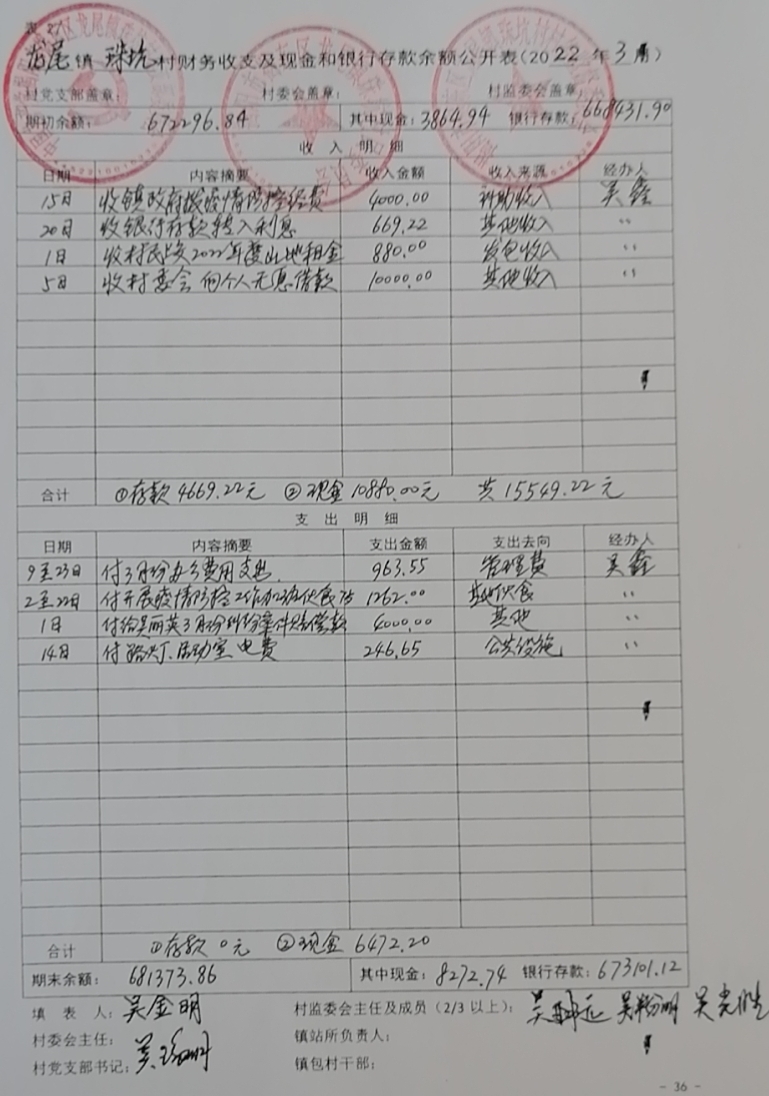 表2
龙尾镇 珠坑村财务收支及现金和银行存款余额公开表(2022年3月)
村党支部盖章: 村委会盖章: 村监委会盖章:
期初余额: 672296.84 其中现金: 3864.94 银行存款: 668431.90
收入明细
日期 内容摘要 收入金额 收入来源 经办人
15日 收镇政府拨疫情防控经费 4000.00 补助收入 吴鑫
20日 收银行存款转入利息 669.22 其他收入 〃
1日 收村民交2022年度山地租金 880.00 发包收入 〃
5日 收村委会向个人无息借款 10000.00 其他收入 〃
合计 ①存款4669.22元 ②现金10880.00元 共15549.22元
支出明细
日期 内容摘要 支出金额 支出去向 经办人
9至23日 付3月份办公费用支出 963.55 管理费 吴鑫
2至22日 付开展疫情防控工作加班伙食 1262.00 其他伙食 〃
1日 付给吴丽英3月份纠纷案件赔偿款 4000.00 其他 〃
14日 付路灯、活动室电费 246.65 公共设施 〃
合计 ①存款0元 ②现金6472.20
期末余额: 681373.86 其中现金: 8272.74 银行存款: 673101.12
填表人: 吴金明 村监委会主任及成员(2/3以上):
村委会主任: 镇站所负责人:
村党支部书记: 镇包村干部:
- 36 -